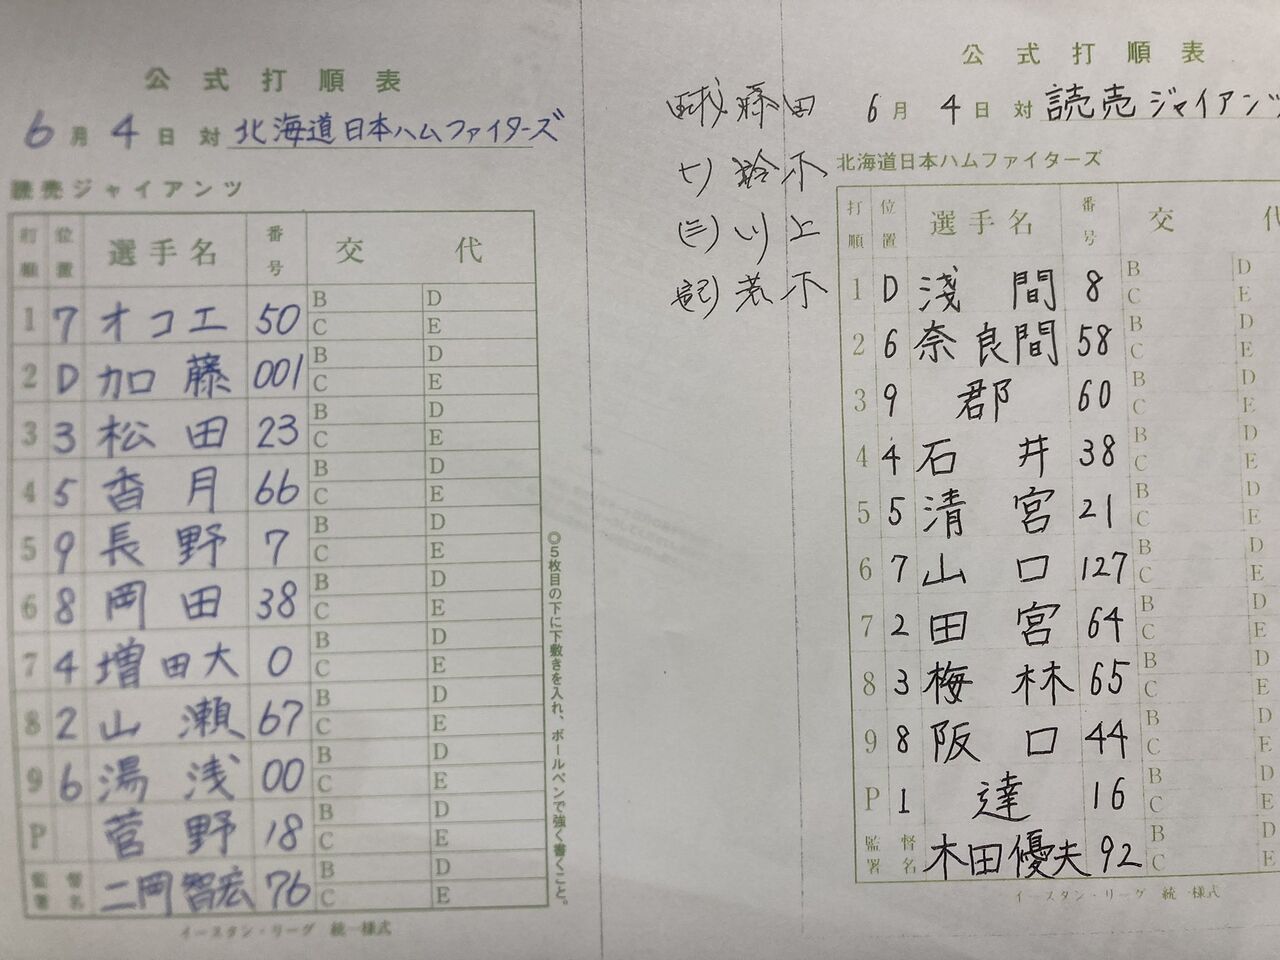 公式打順表
6月4日 対 北海道日本ハムファイターズ
読売ジャイアンツ
打順 位置 選手名 番号 交代
1 7 オコエ 50 B D C E
2 D 加藤 001 B D C E
3 3 松田 23 B D C E
4 5 香月 66 B D C E
5 9 長野 7 B D C E
6 8 岡田 38 B D C E
7 4 増田大 0 B D C E
8 2 山瀬 67 B D C E
9 6 湯浅 00 B D C E
P 菅野 18 B D C E
監督署名 二岡智宏 76 B D C E
イースタン・リーグ 統一様式
◎5枚目の下に下敷きを入れ、ボールペンで強く書くこと。
藤田
川上
公式打順表
6月4日 対 読売ジャイアンツ
北海道日本ハムファイターズ
打順 位置 選手名 番号 交代
1 D 浅間 8 B D C E
2 6 奈良間 58 B D C E
3 9 郡 60 B D C E
4 4 石井 38 B D C E
5 5 清宮 21 B D C E
6 7 山口 127 B D C E
7 2 田宮 64 B D C E
8 3 梅林 65 B D C E
9 8 阪口 44 B D C E
P 1 達 16 B D C E
監督署名 木田優夫 92 B D C E
イースタン・リーグ 統一様式